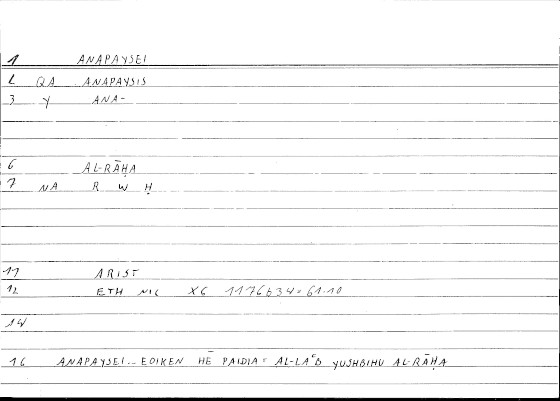 1 ANAPAYSEI
2 QA ANAPAYSIS
3 Y ANA-
6 AL-RĀḤA
7 NA R W Ḥ
11 ARIST
12 ETH NIC X6 1176b34=61.10
14
16 ANAPAYSEI.. EOIKEN HĒ PAIDIA= AL-LAʿB YUSHBIHU AL-RĀḤA